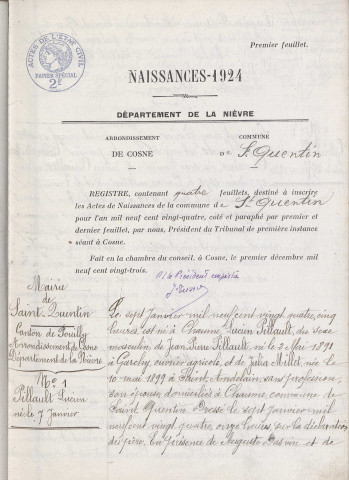 Premier feuillet.
ACTES DE L'ÉTAT CIVIL
PAPIER SPÉCIAL
2F
NAISSANCES-1924
DÉPARTEMENT DE LA NIÈVRE
ARRONDISSEMENT
DE COSNE
COMMUNE
DE St Quentin
REGISTRE, contenant quatre feuillets, destiné à inscrire
les Actes de Naissances de la commune de St Quentin
pour l'an mil neuf cent vingt-quatre, coté et paraphé par premier et
dernier feuillet, par nous, Président du Tribunal de première instance
séant à Cosne.
Fait en la chambre du conseil, à Cosne, le premier décembre mil
neuf cent vingt-trois.
Le Président
Mairie
de
Saint Quentin
Canton de Pouilly
Arrondissement de Cosne
Département de la Nièvre
No 1
Pillault Lucien
né le 7 Janvier
Le sept Janvier mil neuf cent vingt quatre, cinq
heures, est né à Chaume, Lucien Pillault, du sexe
masculin de Jean Pierre Pillault, né le 2 Mai 1891
à Garchy, ouvrier agricole, et de Julia Millet, née le
10 mai 1899 à Saint Andelain, sans profession,
son épouse, domiciliés à Chaume, commune de
Saint Quentin. Dressé le sept Janvier mil
neuf cent vingt quatre, onze heures, sur la déclaration
du père. En présence de Auguste et de